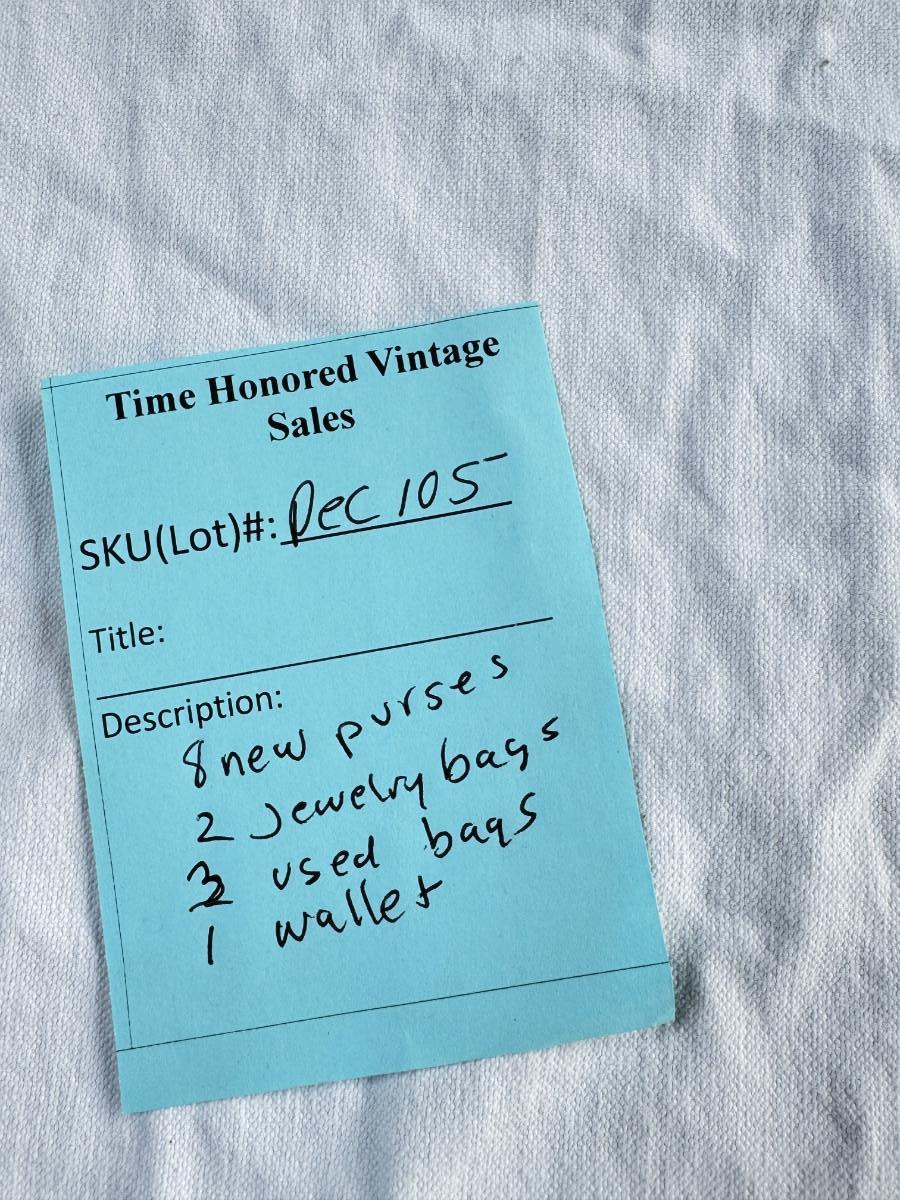 Time Honored Vintage
Sales
SKU(Lot)#: Dec 105
Title:
Description:
8 new purses
2 Jewelry bags
3 used bags
1 wallet